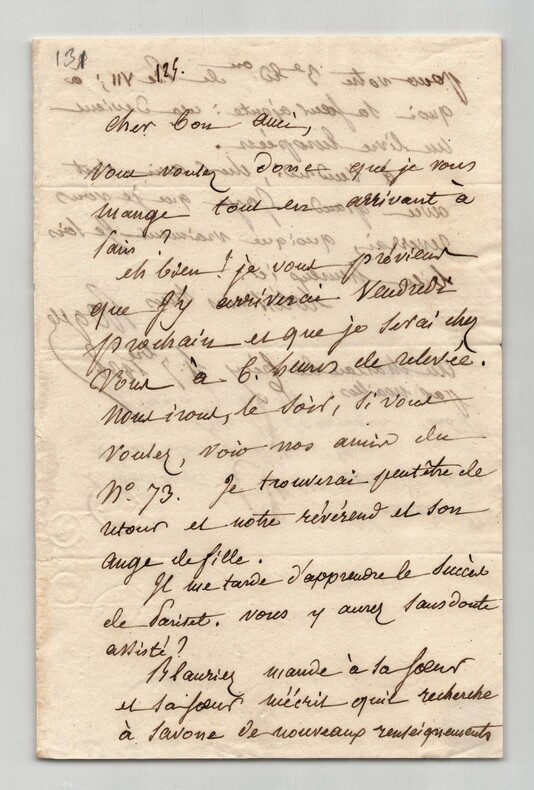 131
125.
Cher bon ami,
Vous voulez donc que je vous
mange tout en arrivant à
Paris ?
eh bien ! je vous préviens
que j'y arriverai Vendredi
prochain et que je serai chez
vous à 6. heures de relevée.
Nous irons, le soir, si vous
voulez, voir nos amis du
N.° 73. Je trouverai peutêtre de
retour et notre révérend et son
ange de fille.
Il me tarde d'apprendre le succès
de Pariset. vous y aurez sans doute
assisté ?
mande à sa sœur
et sa sœur m'écrit qu'il recherche
à Savone de nouveaux renseignements